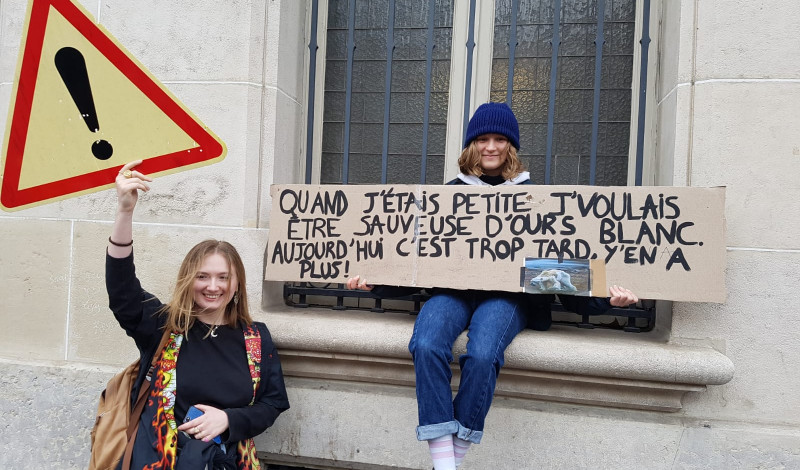 QUAND J'ÉTAIS PETITE J'VOULAIS
ÊTRE SAUVEUSE D'OURS BLANC.
AUJOURD'HUI C'EST TROP TARD, Y'EN A
PLUS!